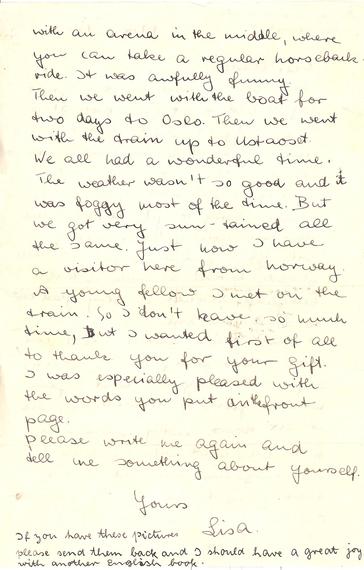 with an arena in the middle, where
you can take a regular horseback-
ride. It was awfully funny.
Then we went with the boat for
two days to Oslo. Then we went
with the train up to Ustaoset.
We all had a wonderful time.
The weather wasn't so good and it
was foggy most of the time. But
we got very sun-tained all
the same. Just now I have
a visitor here from Norway.
A young fellow I met on the
train. So I don't leave so much
time, but I wanted first of all
to thank you for your gift.
I was especially pleased with
the words you put on the front
page.
please write me again and
tell me something about yourself.
Yours
Lisa.
If you have these pictures
please send them back and I should have a great joy
with another English book.